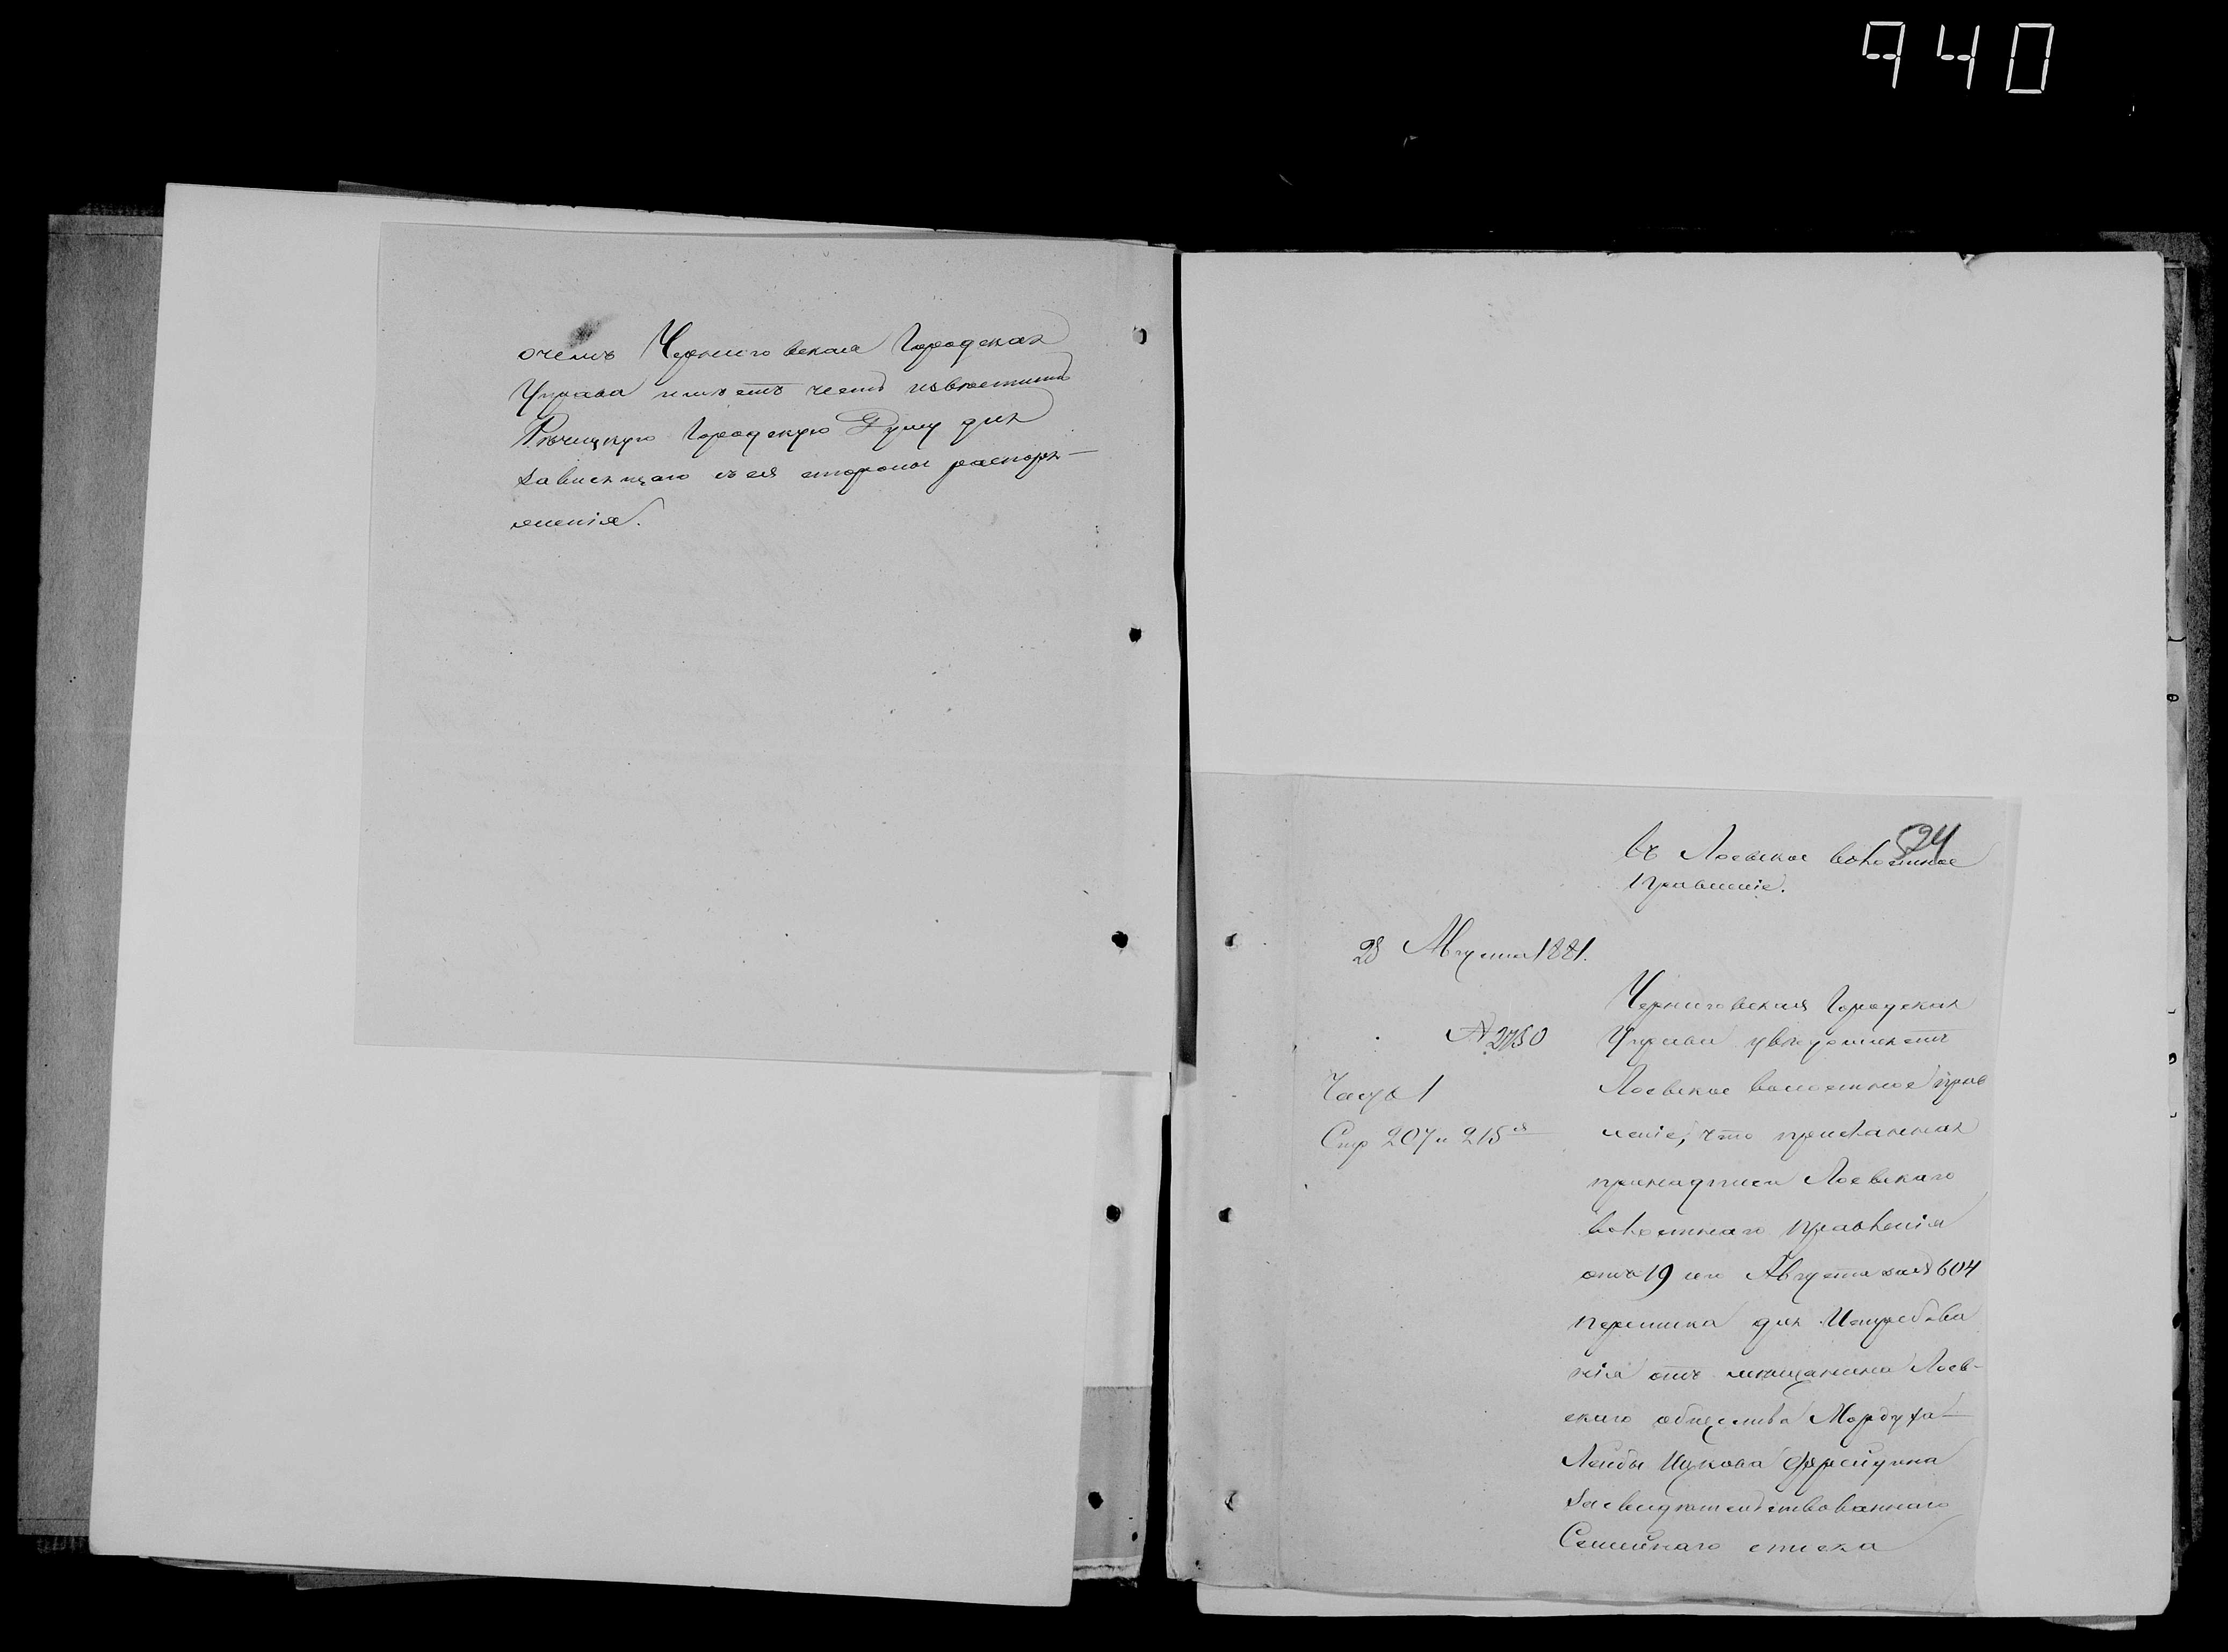 940
о чемъ Черниговская Городская
Управа имѣетъ честь извѣстить
Рѣчицкую Городскую Думу для
зависящаго съ ея стороны распоря-
женія.
524
Въ Лоевское волостное
Правленіе.
28 Августа 1881.
№ 2750
Часть 1
Стр 207 и 215
Черниговская Городская
Управа увѣдомляетъ
Лоевское волостное прав
леніе, что присланная
при надписи Лоевскаго
волостнаго Правленія
отъ 19 сего Августа за № 604
переписка для Истребова
нія отъ мѣщанина Лоев-
скаго общества Мордуха-
Лейбы Ицкова Фрейдина
засвидѣтельствованнаго
Семейнаго списка